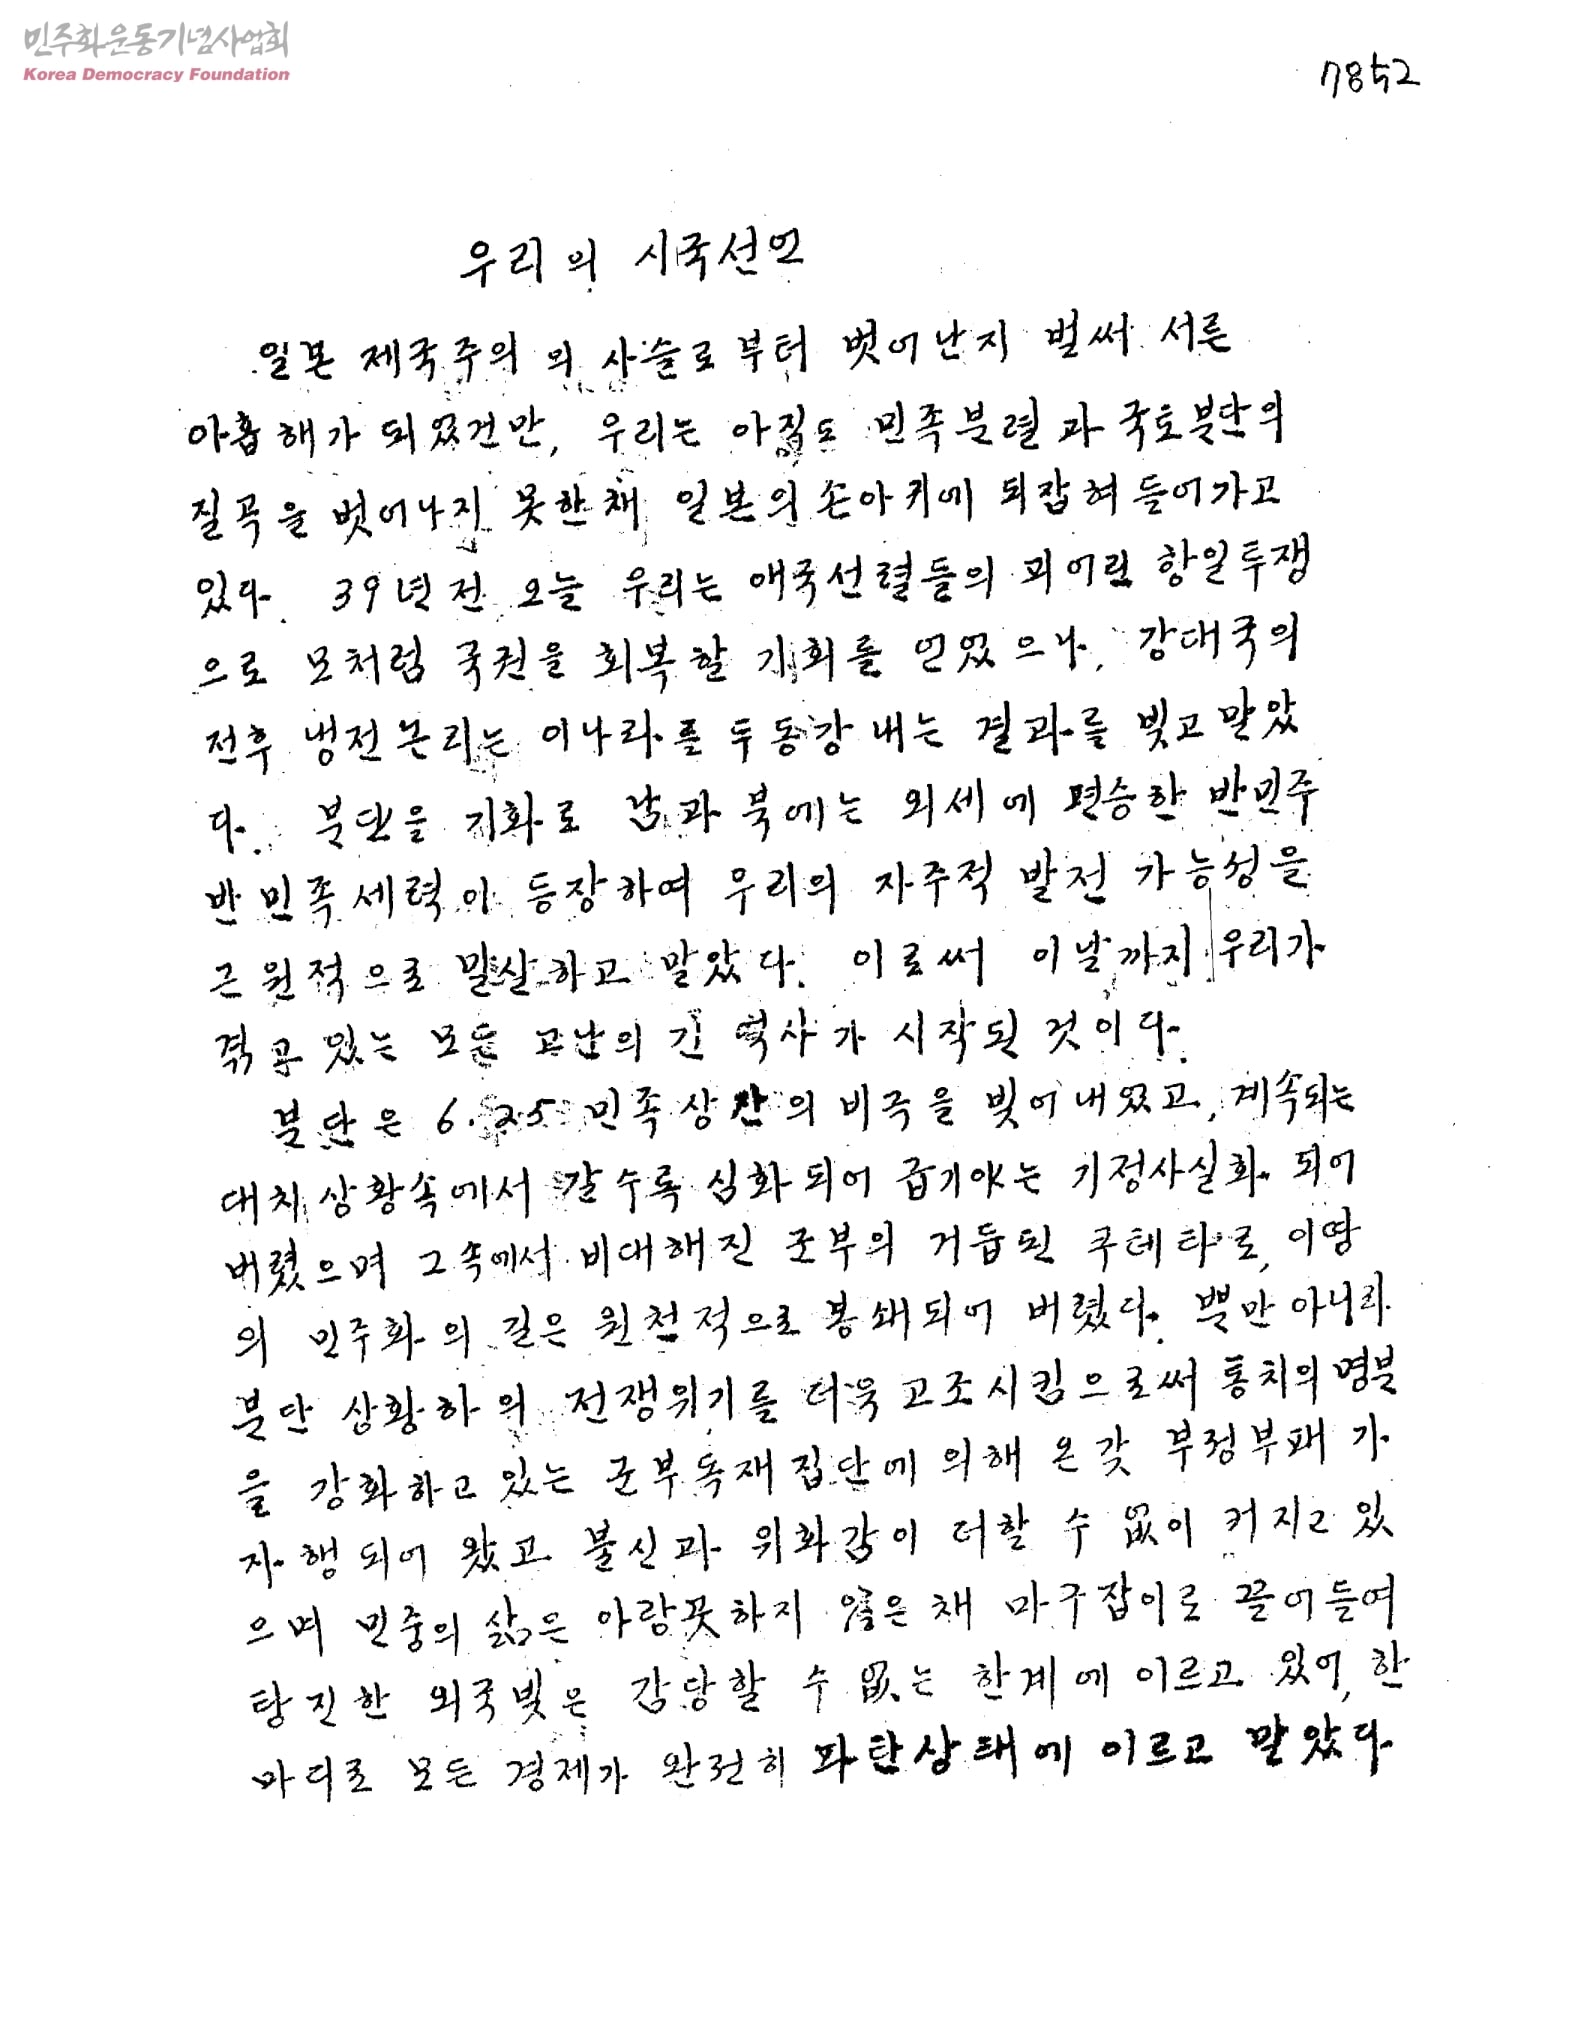 민주화운동기념사업회
Korea Democracy Foundation
78452
우리의 시국선언
일본 제국주의의 사슬로부터 벗어난지 벌써 서른
아홉해가 되었건만, 우리는 아직도 민족분렬과 국토분단의
질곡을 벗어나지 못한채 일본의 손아귀에 되잡혀 들어가고
있다. 39년전 오늘 우리는 애국선렬들의 피어린 항일투쟁
으로 모처럼 국권을 회복할 기회를 얻었으나, 강대국의
전후 냉전논리는 이나라를 두동강 내는 결과를 빚고 말았
다. 분단을 기화로 남과 북에는 외세에 편승한 반민주
반민족세력이 등장하여 우리의 자주적 발전 가능성을
근원적으로 말살하고 말았다. 이로써 이날까지 우리가
겪고 있는 모든 고난의 긴 역사가 시작된 것이다.
분단은 6.25 민족상잔의 비극을 빚어내었고, 계속되는
대치상황속에서 갈수록 심화되어 급기야는 기정사실화 되어
버렸으며 그속에서 비대해진 군부의 거듭된 쿠테타로, 이땅
의 민주화의 길은 원천적으로 봉쇄되어 버렸다. 뿐만 아니라
분단 상황하의 전쟁위기를 더욱 고조시킴으로써 통치의 명분
을 강화하고 있는 군부독재집단에 의해 온갖 부정부패가
자행되어 왔고 불신과 위화감이 더할 수 없이 커지고 있
으며 민중의 삶은 아랑곳하지 않은 채 마구잡이로 끌어들여
탕진한 외국빚은 감당할 수 없는 한계에 이르고 있어, 한
마디로 모든 경제가 완전히 파탄상태에 이르고 말았다